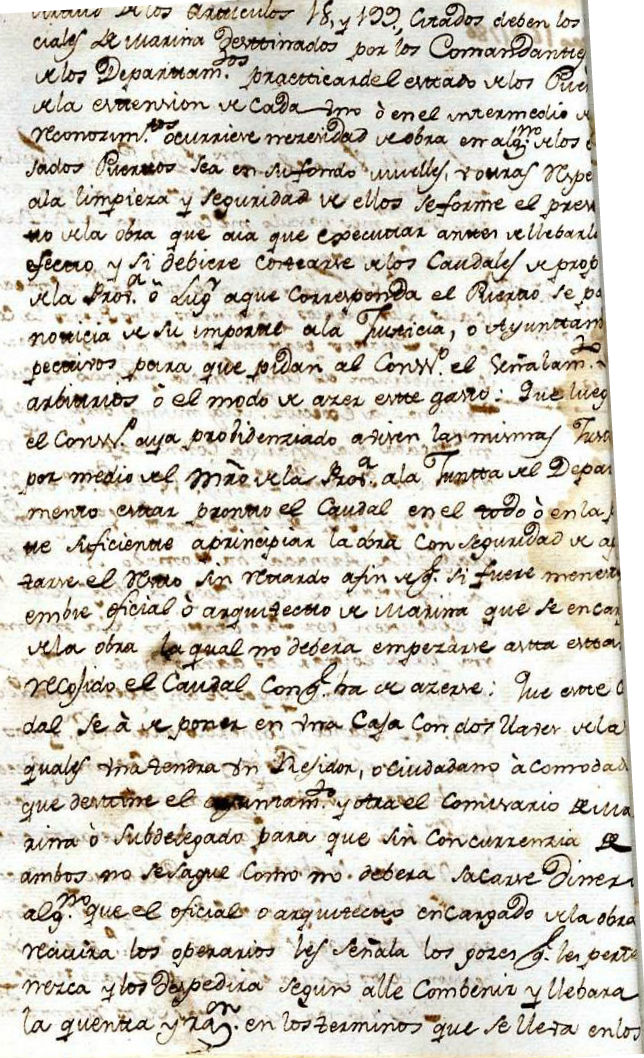 de los Articulos 18, y 199, Citados deben los
ciales de Marina Desttinados por los Comandantes
de los Departtam.tos practticar del esttado de los Puer
de la esttension de Cada uno ò en el intermedio de
Reconozim.tos ocurriese nezesidad de obra en alg.no de los
sados Puertos sea en su fondo muelles, y otras Respe
a la limpieza y seguridad de ellos se forme el presu
to de la obra que aia que executtar anttes de llebarla
efectto y si debiere costearse de los Caudales de prop
de la Prov.a ò Lug.r a que Corresponda el Puertto se pa
notticia de su importte a la Justticia, o Ayunttam
pecttivos para que pidan al Cons.o el Señalam.to
arbitrios ò el modo de azer estte gasto: Que lueg
el Cons.o aya probidenziado avisen las mismas Just
por medio del Mrõ de la Prov.a a la Juntta del Depar
mento esttar prontto el Caudal en el todo ò en la p
te suficientte a principiar la obra Con seguridad de a
tarse el Restto sin Rettardo a fin de q.e si fuere menest
embie oficial ò arquitectto de Marina que se encar
de la obra la qual no debera empezarse astta estta
recojido el Caudal Con q.e ha de azerse: Que estte C
dal se à de poner en una Caja Con dos llaves de la
quales una tendra un Rejidor, o Ciudadano àcomodad
que desttine el ayunttam.to y otra el Comisario de Ma
rina ò Subdelegado para que sin Concurrenzia de
ambos no se saque Como no debera sacarse Diner
alg.no que el oficial o arquitectto encargado de la obra
Recivira los operarios les señala los gozes q.e les perte
nezca y los Despedira segun alle Combenir y llebara
la quentta y razõn. en los terminos que se lleva en los